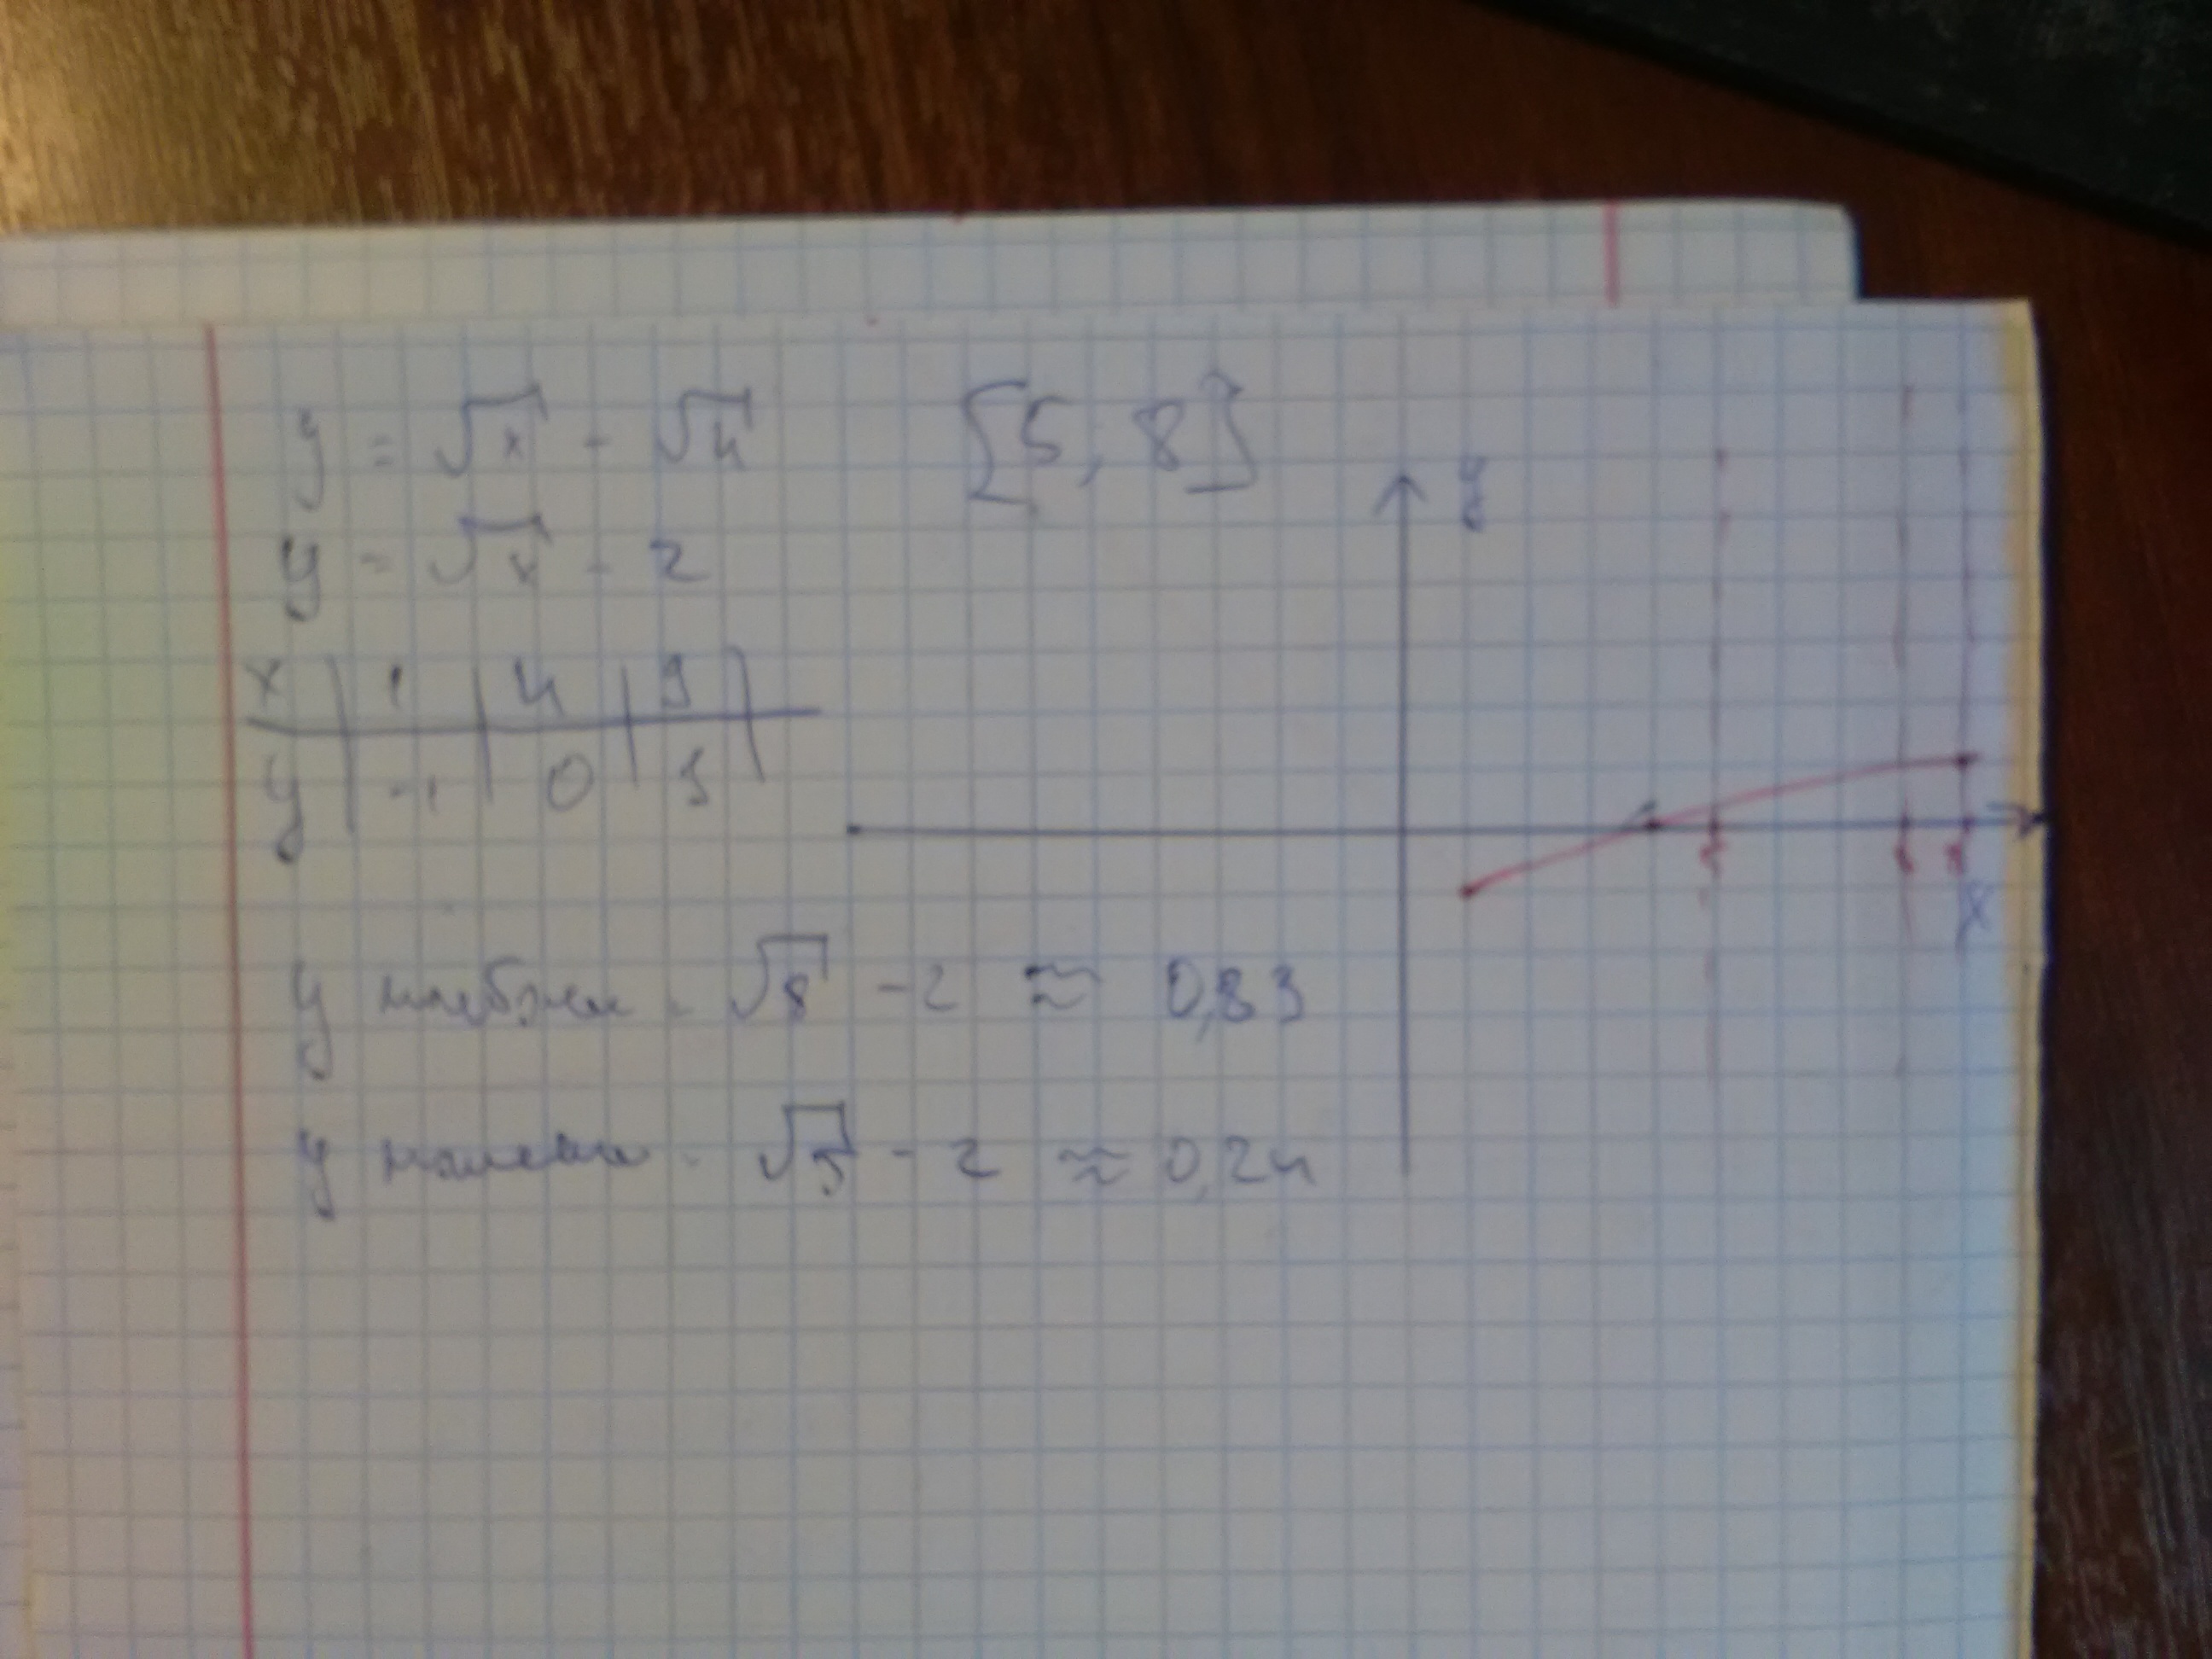 y = √x - √4 [5, 8]
y = √x - 2
x | 1 | 4 | 9 |
y | -1 | 0 | 3 |
y
x
5 8 9
y наибольш. √8 - 2 ≈ 0,83
y наименьш. √5 - 2 ≈ 0,24